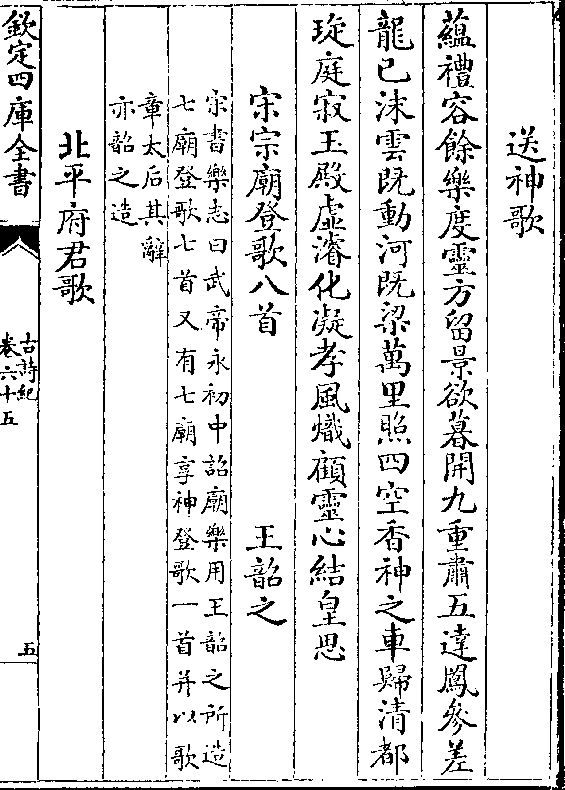 送神歌
蘊禮容餘樂度靈方留景欲暮開九重肅五達鳳參差
龍已沬雲既動河既梁萬里照四空香神之車歸清都
琁庭寂玉殿虛濬化凝孝風熾顧靈心結皇思
宋宗廟登歌八首　王韶之
宋書樂志曰武帝永初中詔廟樂用王韶之所造
七廟登歌七首又有七廟享神登歌一首并以歌
章太后其辭
亦韶之造
北平府君歌
欽定四庫全書
古詩紀
卷六十五
五